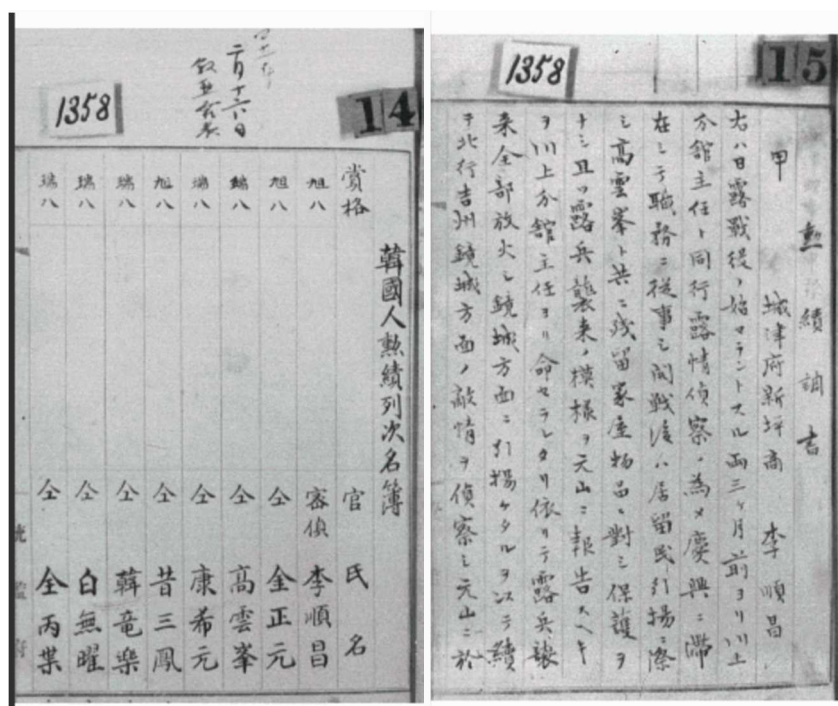 1358
14
二月十六日
韓國人勲績列次名簿
賞格 官 氏名
旭八 審偵 李順昌
旭八 仝 金正元
瑞八 仝 高雲峯
瑞八 仝 康希元
旭八 仝 昔三鳳
瑞八 仝 韓竜樂
瑞八 仝 白無曜
瑞八 仝 金丙業
統監府
1358
15
勲績調書
甲 城津府新坪商 李順昌
右ハ日露戰役ノ始マラントスル両三ヶ月前ヨリ川上
分館主任ト同行露情偵察ノ為メ慶興ニ滞
在シテ職務ニ從事シ開戰後ハ居留民引揚ニ際
シ高雲峯ト共ニ残留家屋物品ニ對シ保護ヲ
ナシ且ツ露兵襲来ノ模様ヲ元山ニ報告スヘキ
ヲ川上分館主任ヨリ命セラレタリ依リテ露兵襲
来全部放火シ鏡城方面ニ引揚ケタルヲ以テ續
テ北行吉州鏡城方面ノ敵情ヲ偵察シ元山ニ於